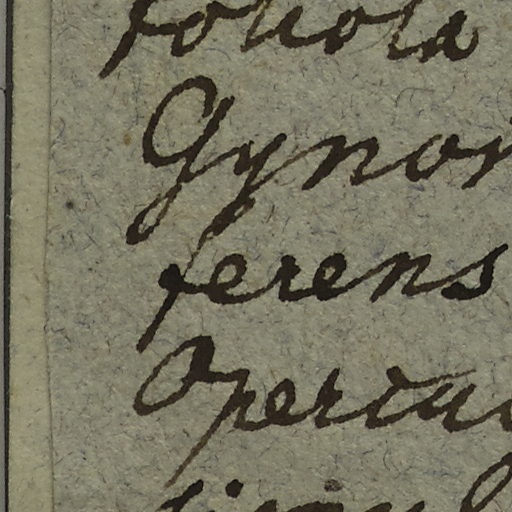 foliola
Gynor
ferens
Opercu